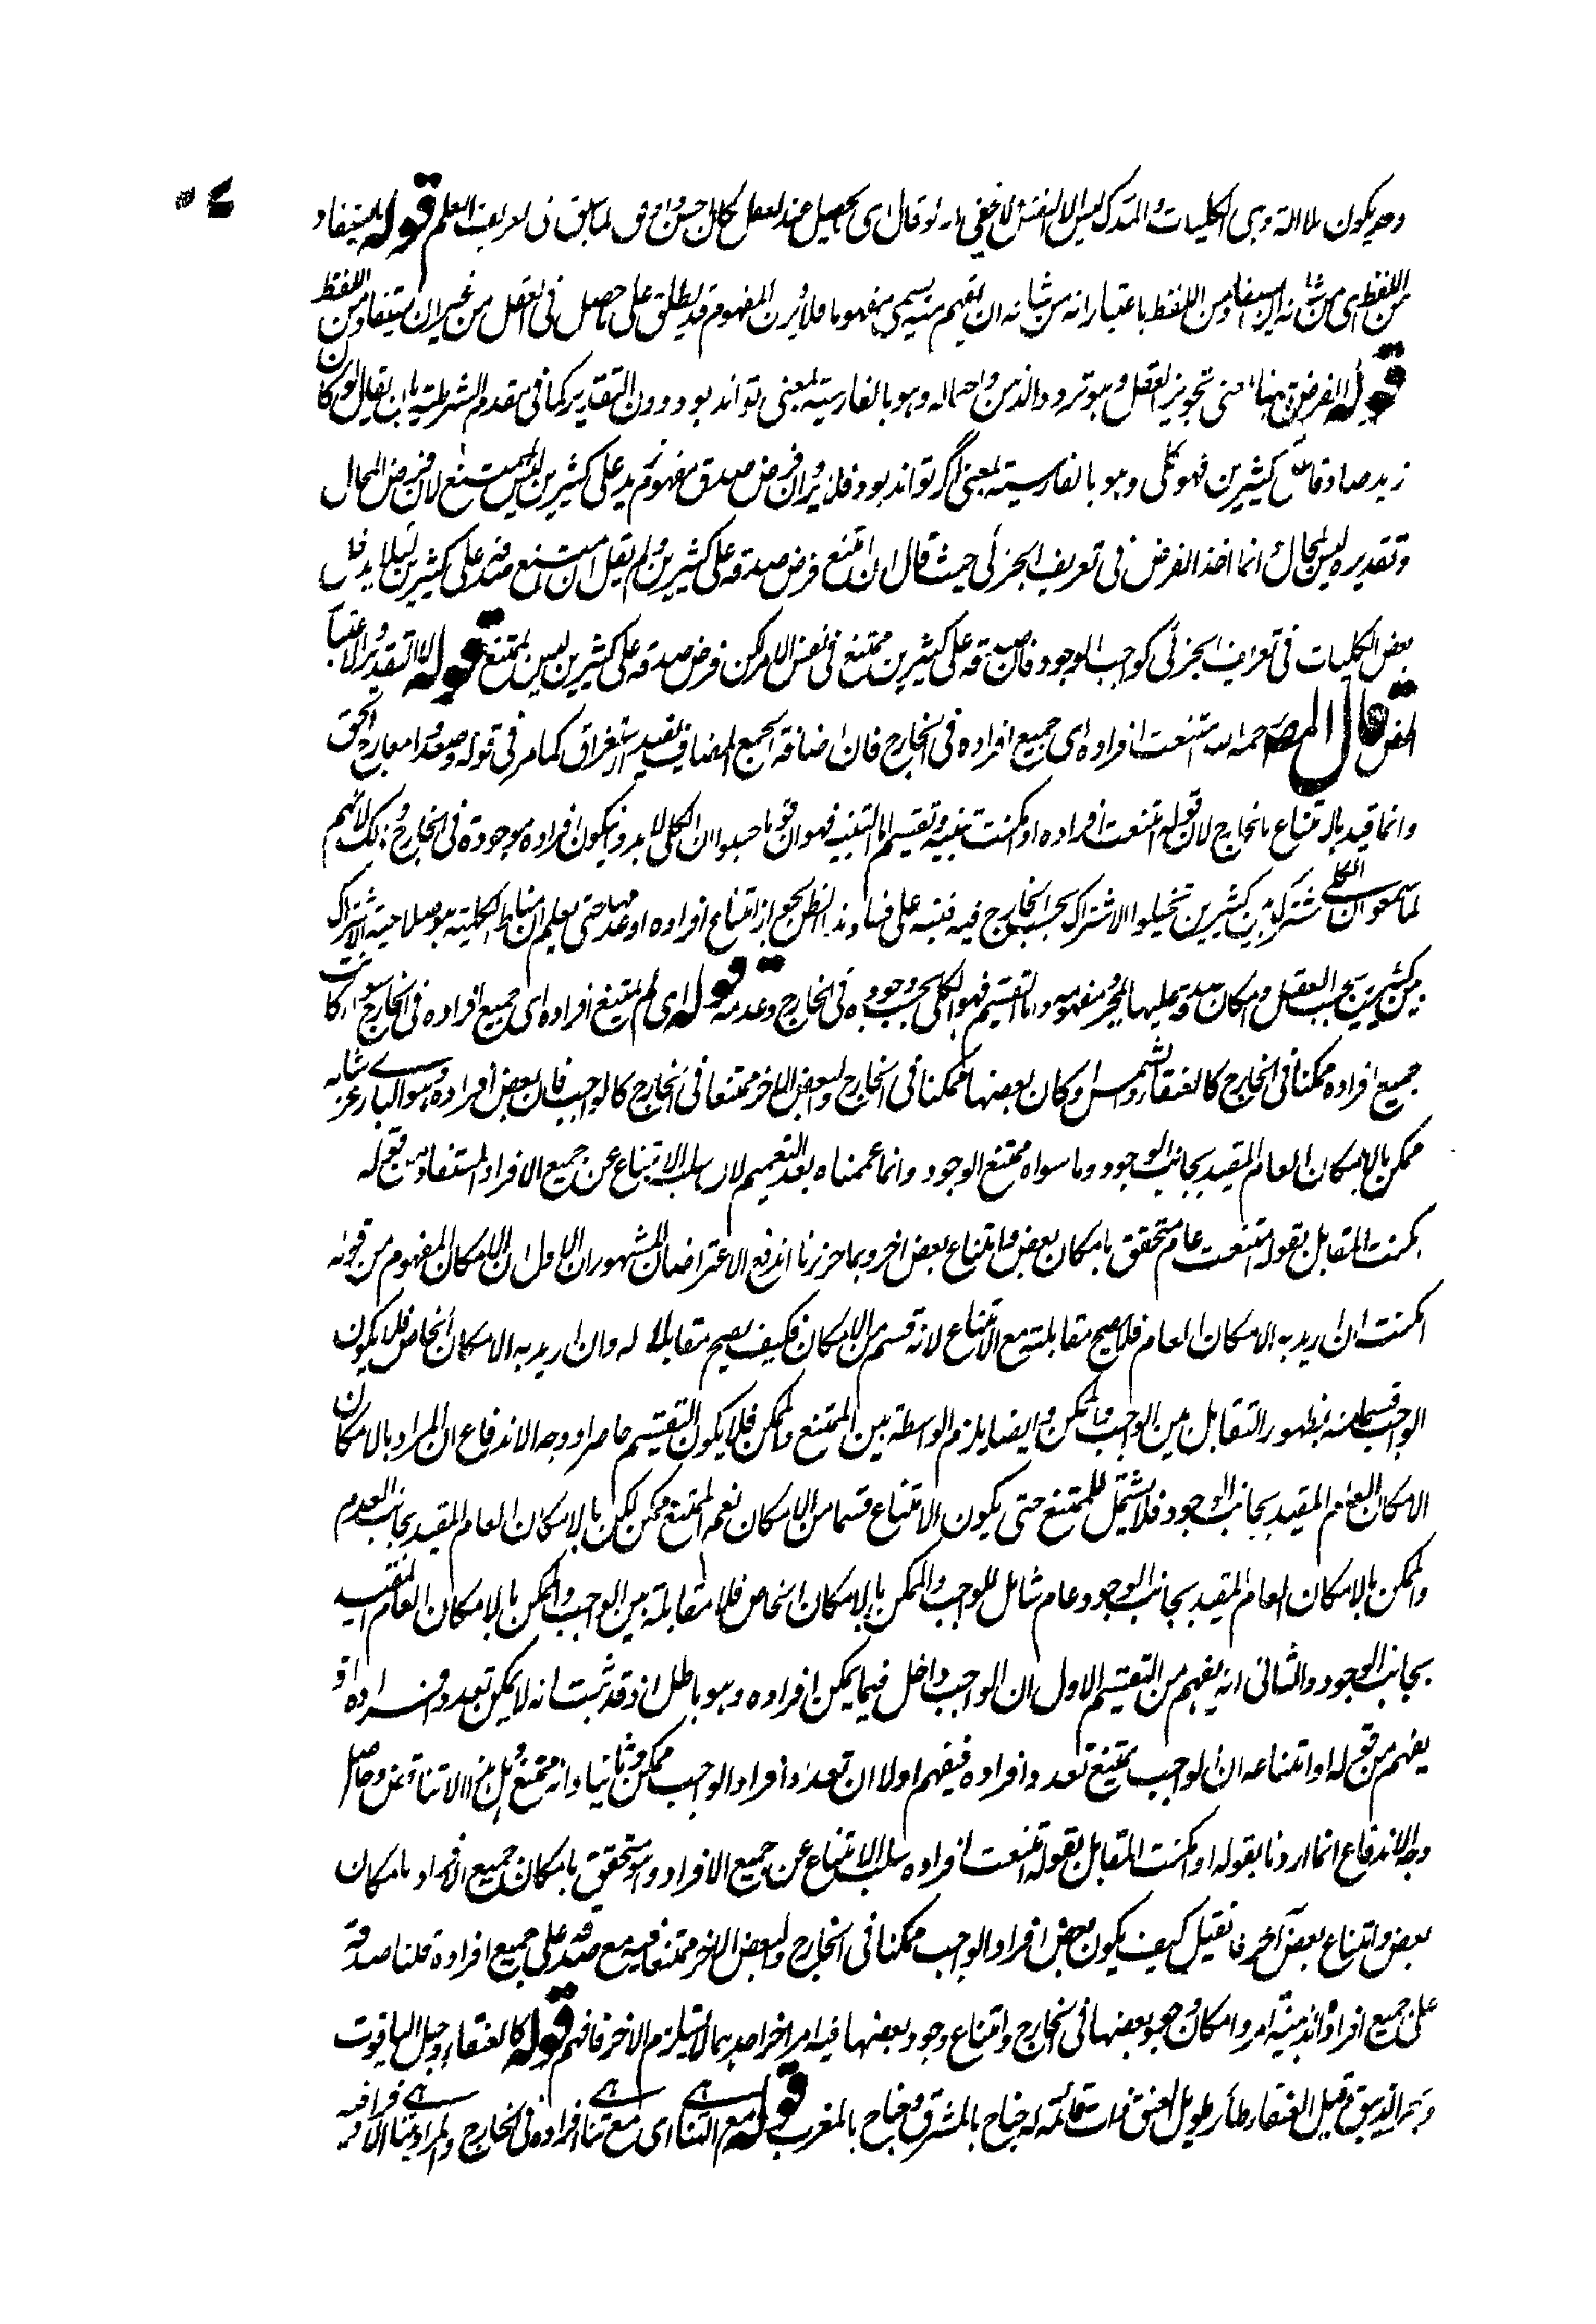 وح يكون بالآلة وهي الكليات والمدرك ليس الا النفس لا يخفى انه لو قال اي يحصل عند العقل لكان احسن واوفق لما سبق في تعريف العلم قوله يستفاد
من اللفظ اي من شانه ان يستفاد من اللفظ باعتبار انه من شانه ان يفهم منه يسمى مفهوما فلا يرد ان المفهوم قد يطلق على ما حصل في العقل من غير ان يستفاد من اللفظ
قوله الفرض ههنا بمعنى تجويز العقل وهو تردد الذهن واحتماله وهو بالفارسية بمعنى تواند بود دون التقدير كما في مقدم الشرطية بان يقال لو كان
زيد صادقا على كثيرين فهو كلي وهو بالفارسية بمعنى اگر تواند بود فلا يرد ان فرض صدق مفهوم زيد على كثيرين ليس بممتنع لان فرض المحال
وتقديره ليس بمحال وانما اخذ الفرض في تعريف الجزئي حيث قال ان امتنع فرض صدقه على كثيرين ولم يقل ان امتنع صدقه على كثيرين لئلا يدخل
بعض الكليات في تعريف الجزئي كواجب الوجود فان صدقه على كثيرين ممتنع في نفس الامر لكن فرض صدقه على كثيرين ليس بممتنع قوله لا التقدير والاعتبار
قال المص رحمه الله امتنعت افراده اي جميع افراده في الخارج فان اضافة الجمع المضاف يفيد الاستغراق كما مر في قوله وصعدوا معارج الحق
وانما قيد بالامتناع بالخارج لان قوله امتنعت افراده او امكنت تنبيه وتقسيم اما التنبيه فهو ان قوما حسبوا ان الكلي لا بد ويكون افراده موجودة في الخارج وذلك لانهم
لما سمعوا ان الكلي مشترك بين كثيرين تخيلوا الاشتراك بحسب الخارج فيه فنبه على فساد هذا الظن بجواز امتناع افراده او عدمها حتى يعلم ان مناط الكلية هو صلاحية الاشتراك
بين كثيرين بحسب العقل وامكان صدقه عليها بمجرد مفهومه واما التقسيم فهو الكلي بحسب وجوده في الخارج وعدمه قوله اي لم يمتنع افراده اي جميع افراده في الخارج سواء كانت
جميع افراده ممكنا في الخارج كالعنقاء والشمس او كان بعضها ممكنا في الخارج ولبعض الاخر ممتنعا في الخارج كالواجب فان بعض افراده وهو الباري عز شانه
ممكن بالامكان العام المقيد بجانب الوجود وما سواه ممتنع الوجود وانما عممناه بعد التعميم لان سلب الامتناع عن جميع الافراد المستفاد من قوله
امكنت المقابل بقوله امتنعت عام متحقق بامكان بعض وامتناع بعض اخر وبما حررنا اندفع الاعتراضان المشهوران الاول ان الامكان المفهوم من قوله
امكنت ان اريد به الامكان العام فلا يصح مقابلته مع الامتناع لانه قسم من الامكان فكيف يصح مقابلا له وان اريد به الامكان الخاص فلا يكون
الواجب قسما منه لظهور التقابل بين الواجب والممكن وايضا يلزم الواسطة بين الممتنع والممكن فلا يكون التقسيم حاصرا ووجه الاندفاع ان المراد بالامكان
الامكان العام المقيد بجانب الوجود فلا يشمل للممتنع حتى يكون الامتناع قسما من الامكان نعم الممتنع ممكن لكن بالامكان العام المقيد بجانب العدم
والممكن بالامكان العام المقيد بجانب الوجود عام شامل للواجب والممكن بالامكان الخاص فلا مقابلة بين الواجب والممكن بالامكان العام المقيد
بجانب الوجود والثاني انه يفهم من التقسيم الاول ان الواجب داخل فيما يمكن افراده وهو باطل اذ قد ثبت انه لا يمكن تعدد افراده او
يفهم من قوله او امتناعه ان الواجب يمتنع تعدد افراده فيفهم اولا ان تعدد افراد الواجب ممكن وثانيا وانه ممتنع وهل هذا الا تناقض وحاصل
وجه الاندفاع انما اردنا بقوله او امكنت المقابل بقوله امتنعت افراده سلب الامتناع عن جميع الافراد وهو متحقق بامكان جميع الافراد وبامكان
بعض وامتناع بعض آخر فان قيل كيف يكون بعض افراد الواجب ممكنا في الخارج ولبعض الاخر ممتنعا فيه مع صدقه على جميع افراده قلنا صدقه
على جميع افراده الذهنية امر وامكان وجود بعضها في الخارج وامتناع وجود بعضها فيه امر اخر احدهما لا يستلزم الاخر فافهم قوله كالعنقاء وجبل الياقوت
وبحر الزيبق قيل العنقاء طائر طويل العنق ذات قائمة له جناح بالمشرق وجناح بالمغرب قوله مع التناهي اي مع تناهي افراده في الخارج والمراد بتناهي الافراد